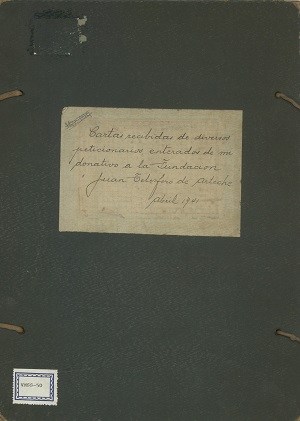 Cartas recibidas de diversos
peticionarios, enterados de un
donativo a la Fundacion
Juan Telesforo de Arteche
Abril 19